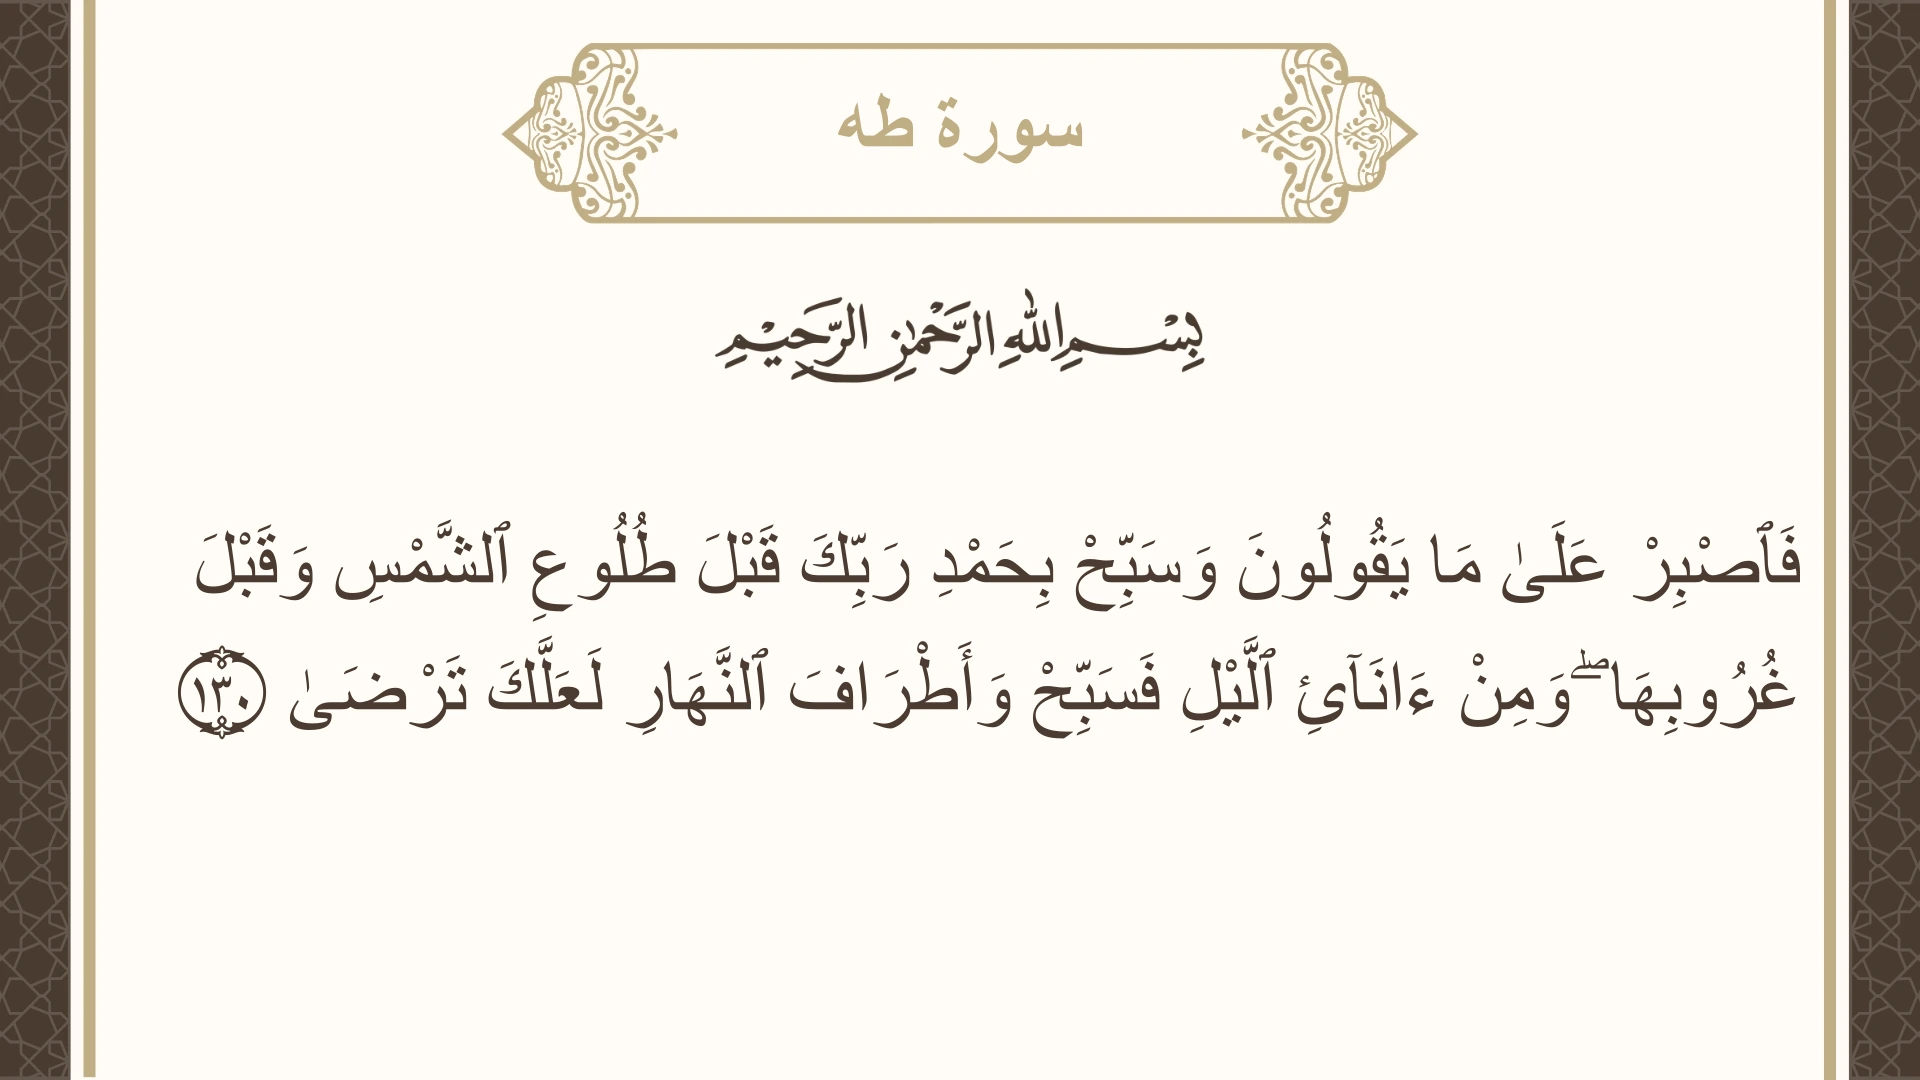 سورة طه
بِسْمِ اللهِ الرَّحْمٰنِ الرَّحِيْمِ
فَٱصْبِرْ عَلَىٰ مَا يَقُولُونَ وَسَبِّحْ بِحَمْدِ رَبِّكَ قَبْلَ طُلُوعِ ٱلشَّمْسِ وَقَبْلَ
غُرُوبِهَا ۖ وَمِنْ ءَانَآئِ ٱلَّيْلِ فَسَبِّحْ وَأَطْرَافَ ٱلنَّهَارِ لَعَلَّكَ تَرْضَىٰ ١٣٠